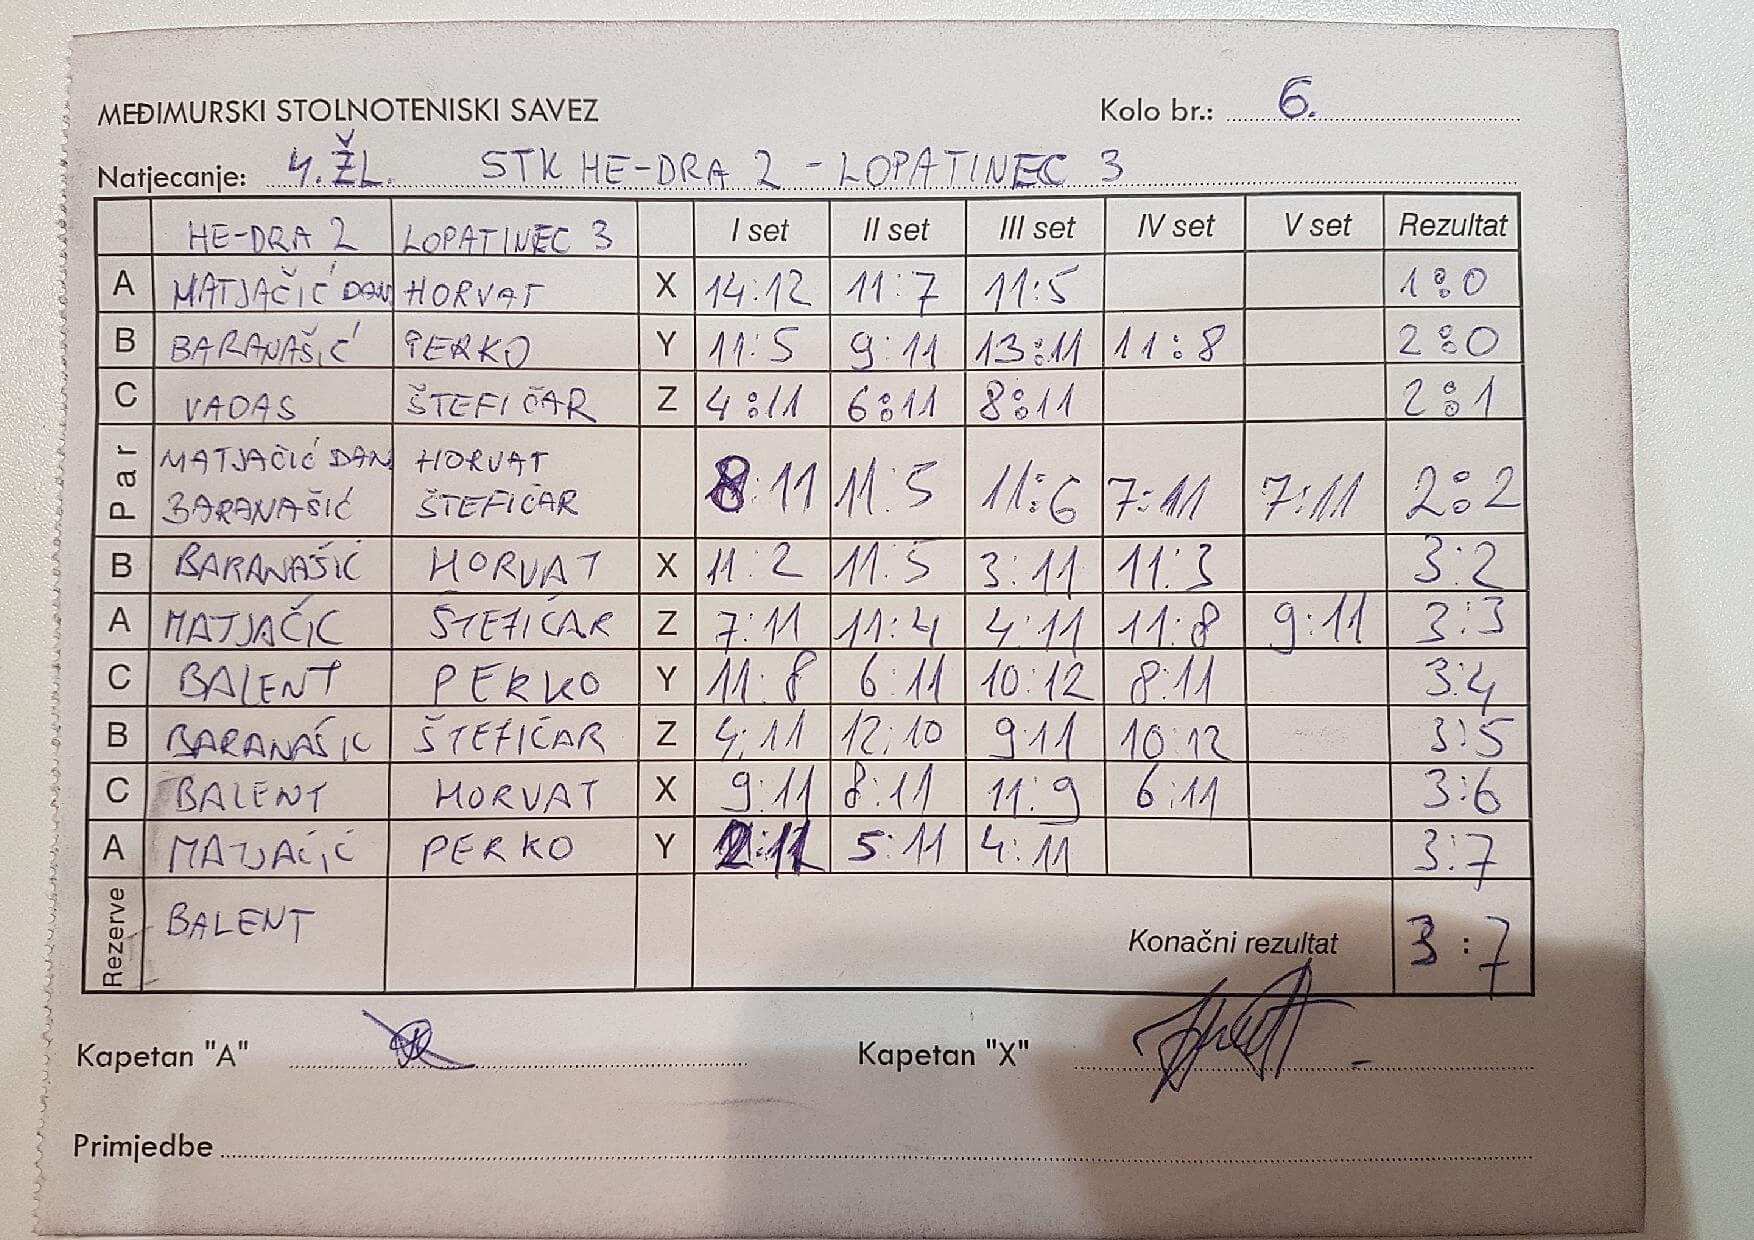 MEĐIMURSKI STOLNOTENISKI SAVEZ Kolo br.: 6.
Natjecanje: 4. ŽL. STK HE-DRA 2 - LOPATINEC 3
HE-DRA 2 LOPATINEC 3 I set II set III set IV set V set Rezultat
A MATJAČIĆ DAN HORVAT X 14:12 11:7 11:5 1:0
B BARANAŠIĆ PERKO Y 11:5 9:11 13:11 11:8 2:0
C VADAS ŠTEFIČAR Z 4:11 6:11 8:11 2:1
Par MATJAČIĆ DAN HORVAT 8:11 11:5 11:6 7:11 7:11 2:2
BARANAŠIĆ ŠTEFIČAR
B BARANAŠIĆ HORVAT X 11:2 11:5 3:11 11:3 3:2
A MATJAČIĆ ŠTEFIČAR Z 7:11 11:4 4:11 11:8 9:11 3:3
C BALENT PERKO Y 11:8 6:11 10:12 8:11 3:4
B BARANAŠIĆ ŠTEFIČAR Z 4:11 12:10 9:11 10:12 3:5
C BALENT HORVAT X 9:11 8:11 11:9 6:11 3:6
A MATJAČIĆ PERKO Y 2:11 5:11 4:11 3:7
Rezerve BALENT Konačni rezultat 3:7
Kapetan "A" Kapetan "X"
Primjedbe